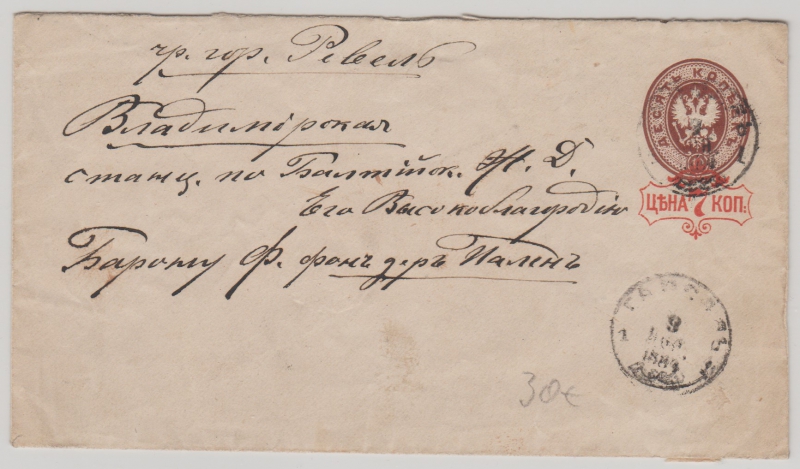 чр. гор. Ревель
Владимірская
станц. по Балтійск. Ж. Д.
Его Высокоблагородію
Барону Ф. фонъ деръ Паленъ
ДЕСЯТЬ КОПѢЕКЪ
ЦѢНА 7 КОП:
1
ГАПСАЛЬ
9
188
30€